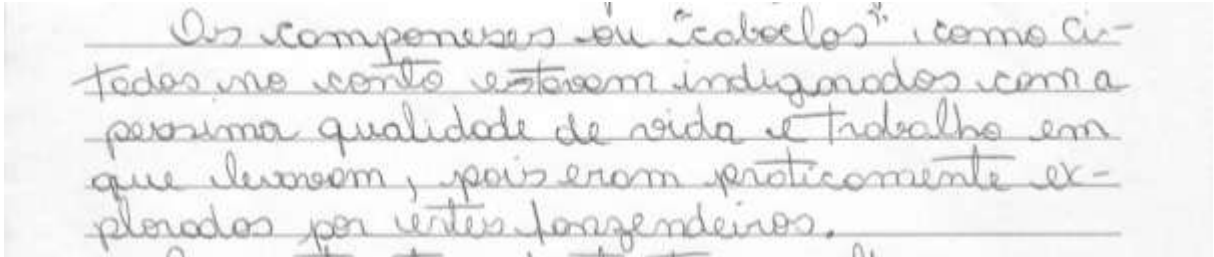 Os componeses ou "caboclos", como ci-
tados no conto estavam indignados com a
perssima qualidade de vida e trabalho em
que levavam, pois eram praticamente ex-
plorados por estes fanzendeiros.